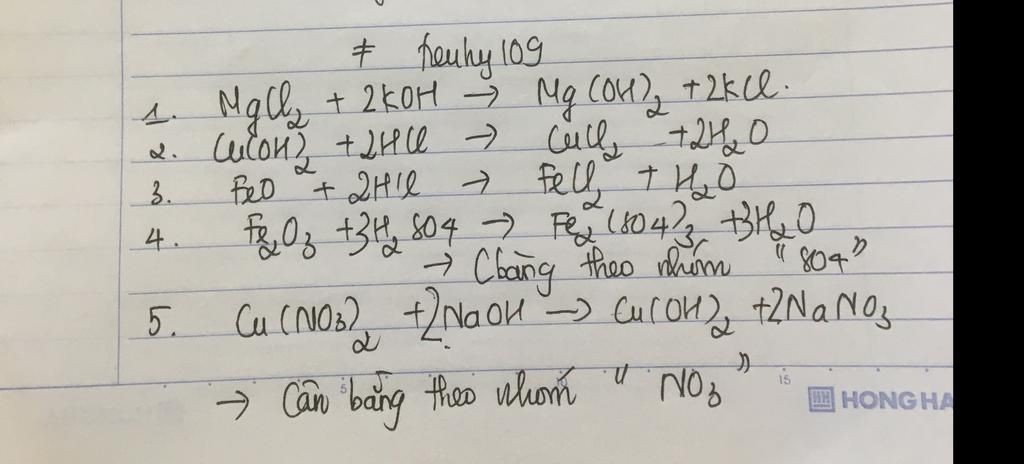 ≠ penhy109
1. MgCl₂ + 2KOH → Mg(OH)₂ + 2KCl.
2. Cu(OH)₂ + 2HCl → CuCl₂ + 2H₂O
3. FeO + 2HCl → FeCl₂ + H₂O
4. Fe₂O₃ + 3H₂SO4 → Fe₂(SO4)₃ + 3H₂O
→ Cbằng theo nhóm "SO4"
5. Cu(NO₃)₂ + 2NaOH → Cu(OH)₂ + 2NaNO₃
→ Cân bằng theo nhóm "NO₃"
5 10 15
HONG HA